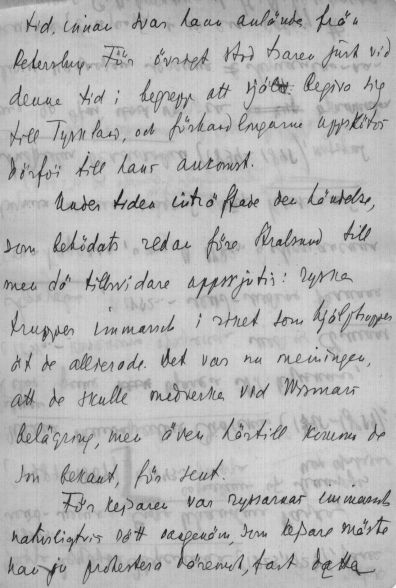 tid, innan svar hann anlända från
Petersburg. För övrigt stod tsaren just vid
denna tid i begrepp att själv begiva sig
till Tyskland, och förhandlingarna uppsköts
därför till hans ankomst.
Under tiden inträffade den händelse,
som bebådats redan före Stralsund till
men då tillsvidare uppskjutits: ryska
trupper immarsch i riket som hjälptrupper
åt de allierade. Det var nu meningen,
att de skulle medverka vid Wismars
belägring, men även härtill kommo de
som bekant, för sent.
För kejsaren var ryssarnas immarsch
naturligtvis ett som kejsare måste
han ju protestera däremot, fast detta